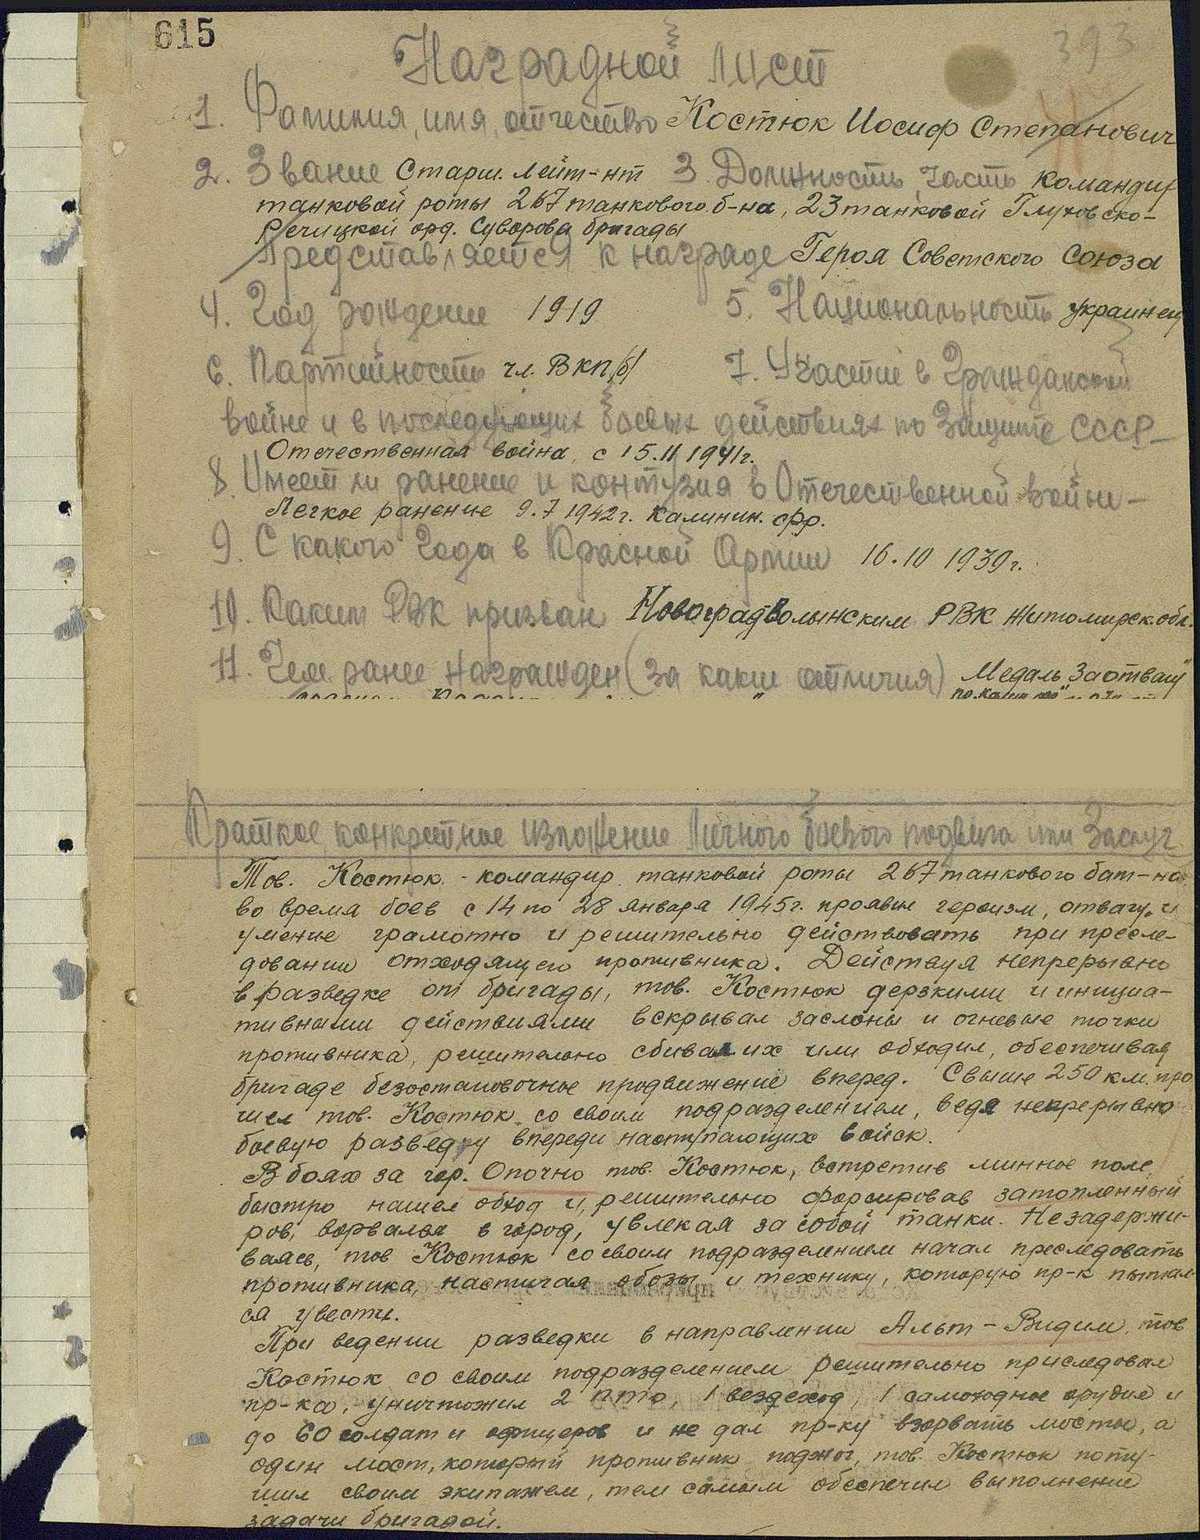 615
393
Наградной лист
1. Фамилия, имя, отчество Костюк Иосиф Степанович
2. Звание Старш. лейт-нт 3. Должность, часть командир
танковой роты 267 танкового б-на, 23 танковой Глуховско-
Речицкой орд. Суворова бригады
Представляется к награде Героя Советского Союза
4. Год рождение 1919 5. Национальность украинец
6. Партийность чл. ВКП/б/ 7. Участие в Гражданской
войне и в последующих боевых действиях по защите СССР -
Отечественная война, с 15.11 1941г.
8. Имеет ли ранение и контузия в Отечественной войне -
Легкое ранение 9.7 1942г. Калинин. фр.
9. С какого года в Красной Армии 16.10 1939г.
10. Каким РВК призван Новоградволынским РВК Житомирск. обл.
11. Чем ранее награжден (за какие отличия) Медаль За отвагу"
Краткое, конкретное изложение личного боевого подвига или заслуг
Тов. Костюк - командир танковой роты 267 танкового бат-на
во время боев с 14 по 28 января 1945г. проявил героизм, отвагу и
умение грамотно и решительно действовать при пресле-
довании отходящего противника. Действуя непрерывно
в разведке от бригады, тов. Костюк дерзкими и инициа-
тивными действиями вскрывал заслоны и огневые точки
противника, решительно сбивал их или обходил, обеспечивая
бригаде безостановочное продвижение вперед. Свыше 250 км. про
шел тов. Костюк со своим подразделением, ведя непрерывно
боевую разведку впереди наступающих войск.
В боях за гор. Опочно тов. Костюк, встретив минное поле,
быстро нашел обход и, решительно форсировав затопленный
ров, ворвался в город, увлекая за собой танки. Не задержи-
ваясь, тов Костюк со своим подразделением начал преследовать
противника, настигая обозы и технику, которую пр-к пытал-
ся увести.
При ведении разведки в направлении Альт-Видим, тов
Костюк со своим подразделением решительно приследовал
пр-ка, уничтожил 2 ПТО, 1 вездеход, 1 самоходное орудие и
до 60 солдат и офицеров и не дал пр-ку взорвать мосты, а
один мост, который противник поджог, тов. Костюк поту-
шил своим экипажем, тем самым обеспечил выполнение
задачи бригадой.